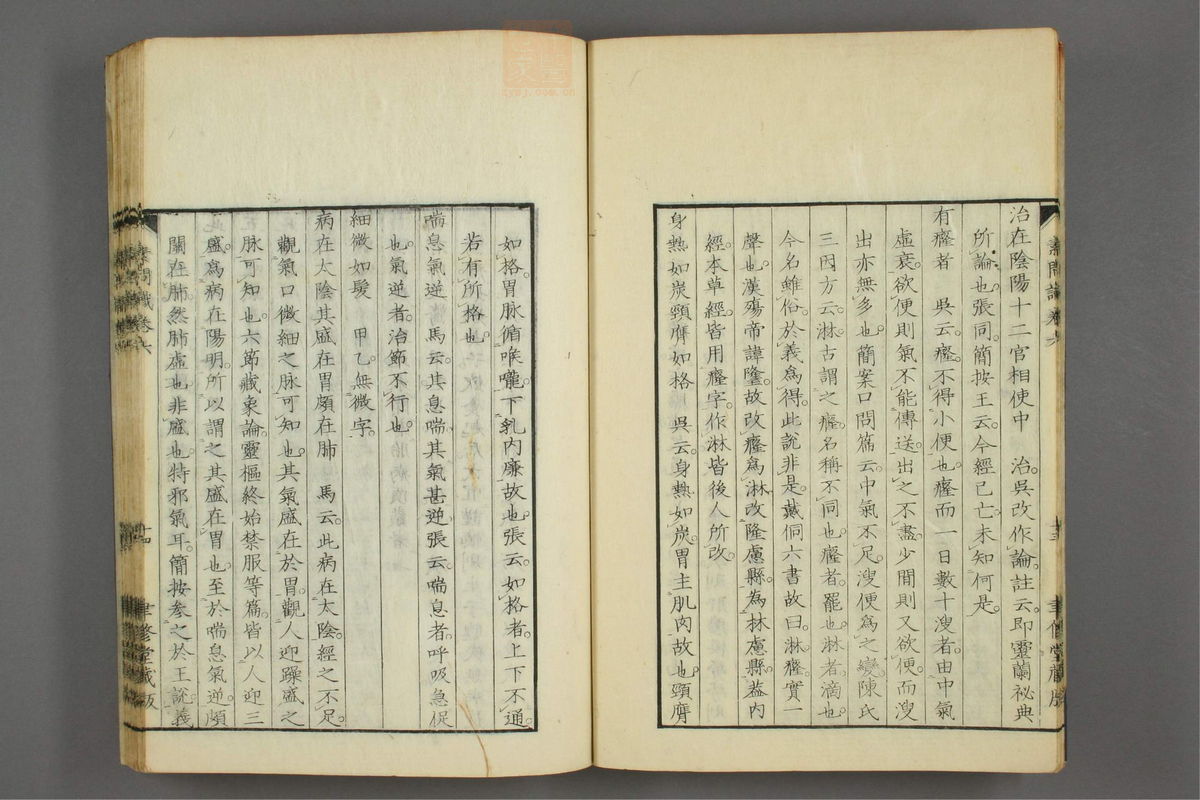 治在陰陽十二官相使中　治吳改作論註云即靈蘭祕典
所論也張同簡按王云今經已亡未知何是
有癃者　吳云癃不得小便也癃而一日數十溲者由中氣
虛衰欲便則氣不能傳送出之不盡少間則又欲便而溲
出亦無多也簡案口問篇云中氣不足溲便爲之變陳氏
三因方云淋古謂之癃名稱不同也癃者罷也淋者滴也
今名雖俗於義爲得此說非是戴侗六書故曰淋癃實一
聲也漢殤帝諱隆故改癃爲淋改隆慮縣為林慮縣蓋内
經本草經皆用癃字作淋皆後人所改
身熱如炭頸膺如格　吳云身熱如炭胃主肌肉故也頸膺
素問識卷六
聿修堂藏版
如格胃脉循喉嚨下乳内廉故也張云如格者上下不通
若有所格也
喘息氣逆　馬云其息喘其氣甚逆張云喘息者呼吸急促
也氣逆者治節不行也
細微如髮　甲乙無微字
病在太陰其盛在胃頗在肺　馬云此病在太陰經之不足
觀氣口微細之脉可知也其氣盛在於胃觀人迎躁盛之
脉可知也六節藏象論靈樞終始禁服等篇皆以人迎三
盛爲病在陽明所以謂之其盛在胃也至於喘息氣逆頗
關在肺然肺虛也非盛也特邪氣耳簡按参之於王註義
素問識卷六
十四
聿修堂藏版